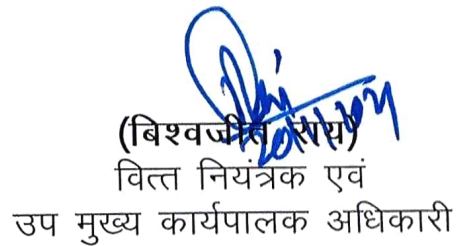 (बिश्वजीत राय)
वित्त नियंत्रक एवं
उप मुख्य कार्यपालक अधिकारी